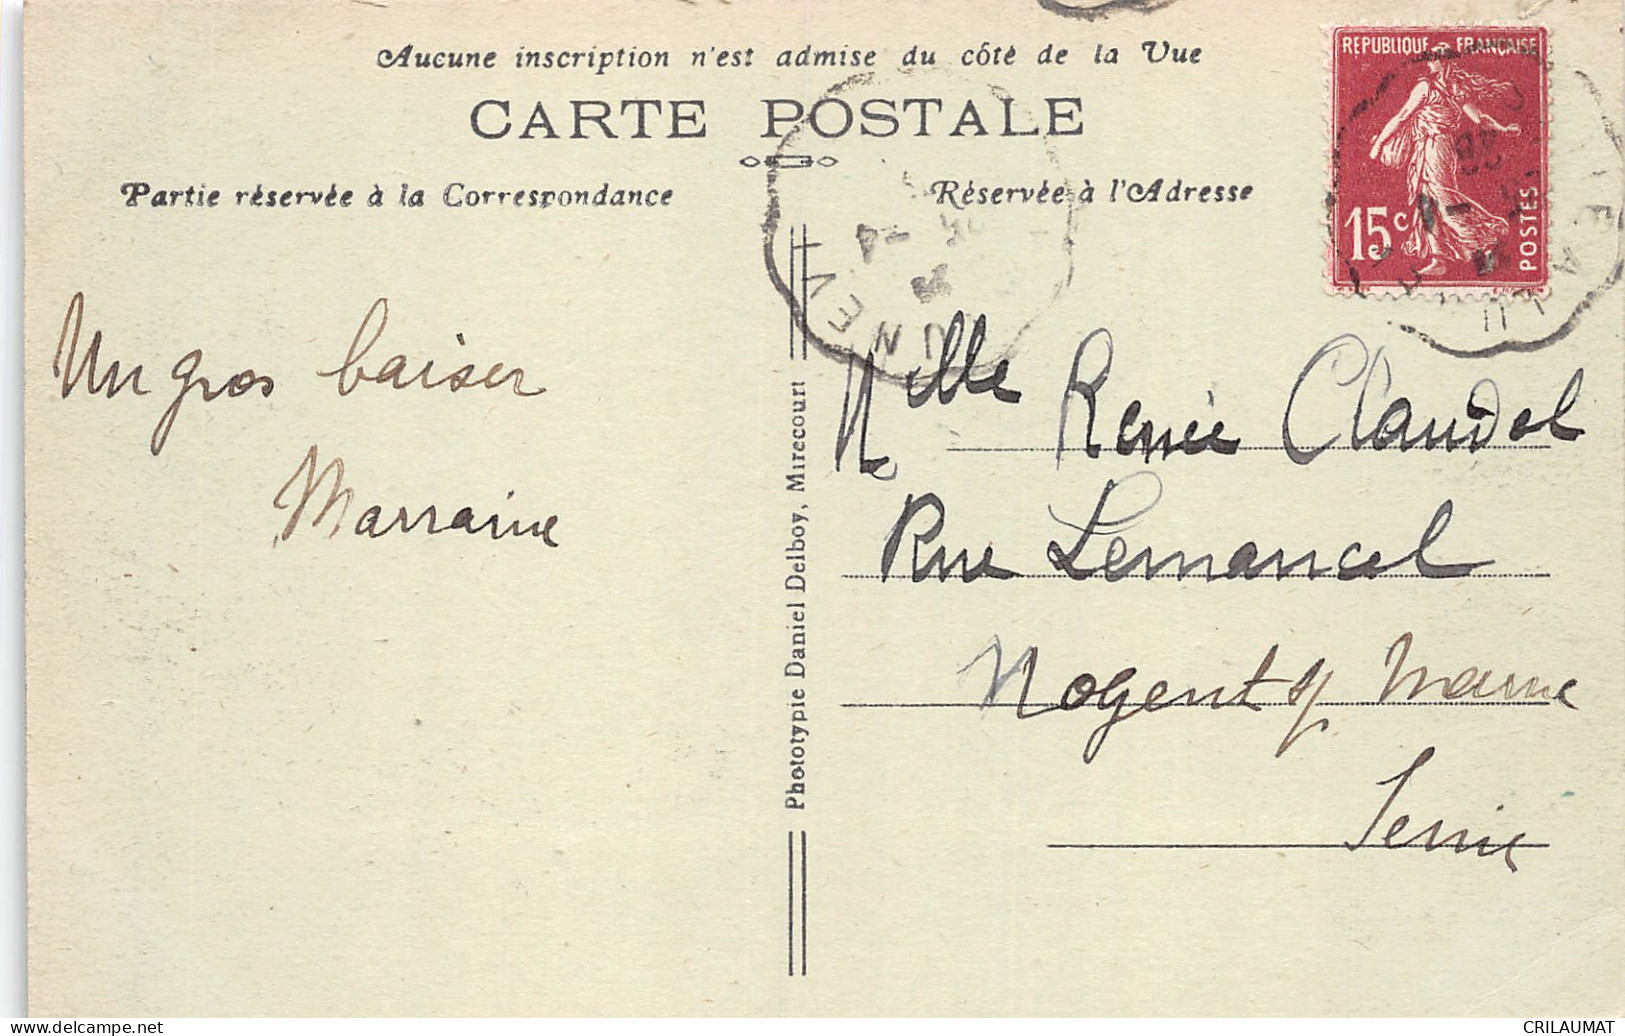 Aucune inscription n'est admise du côté de la Vue
CARTE POSTALE
Partie réservée à la Correspondance
Réservée à l'Adresse
REPUBLIQUE FRANÇAISE
15c
POSTES
Un gros baiser
Marraine
Phototypie Daniel Delboy, Mirecourt
Mlle Renée Claudel
Rue Lemancel
Nogent s/ Marne
Seine
CRILAUMAT